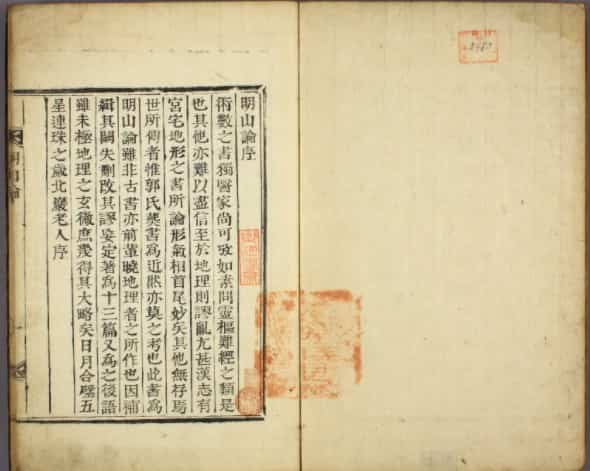 明山論序
術數之書獨醫家尚可攷如素問靈樞難經之類是
也其他亦難以盡信至於地理則謬亂尤甚漢志有
宮宅地形之書所論形氣相首尾妙矣其他無存焉
世所傳者惟郭氏葬書為近然亦莫之考也此書為
明山論雖非古書亦前輩曉地理者之所作也因補
緝其闕失刪改其謬妄定著為十三篇又為之後語
雖未極地理之玄微庶幾得其大略矣日月合璧五
星連珠之歲北巖老人序